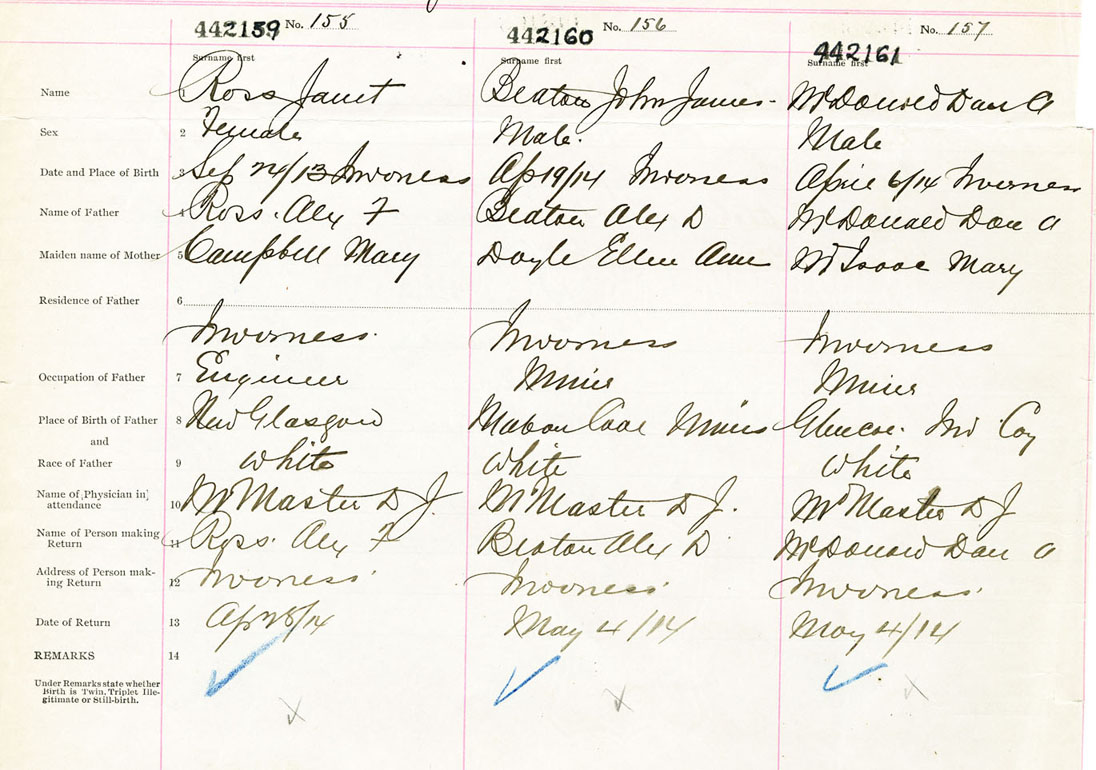 442159 No. 155 442160 No. 156 442161 No. 157
Surname first Surname first Surname first
Name 1 Ross Janet Beaton John James McDonald Dan A
Sex 2 Female Male. Male
Date and Place of Birth 3 Sep 24/13 Inverness Ap 19/14 Inverness April 6/14 Inverness
Name of Father 4 Ross. Alex F Beaton Alex D McDonald Dan A
Maiden name of Mother 5 Campbell Mary Doyle Ellen Ann McIsaac Mary
Residence of Father 6
Inverness. Inverness Inverness
Occupation of Father 7 Engineer Miner Miner
Place of Birth of Father 8 New Glasgow Mabou Coal Mines Glencoe. Inv Coy
and
Race of Father 9 White White White
Name of Physician in attendance 10 McMaster D J. McMaster D J. McMaster D J
Name of Person making Return 11 Ross. Alex F Beaton Alex D McDonald Dan A
Address of Person making Return 12 Inverness Inverness Inverness
Date of Return 13 Ap 28/14 May 4/14 May 4/14
REMARKS 14
Under Remarks state whether
Birth is Twin, Triplet Ille-
gitimate or Still-birth.